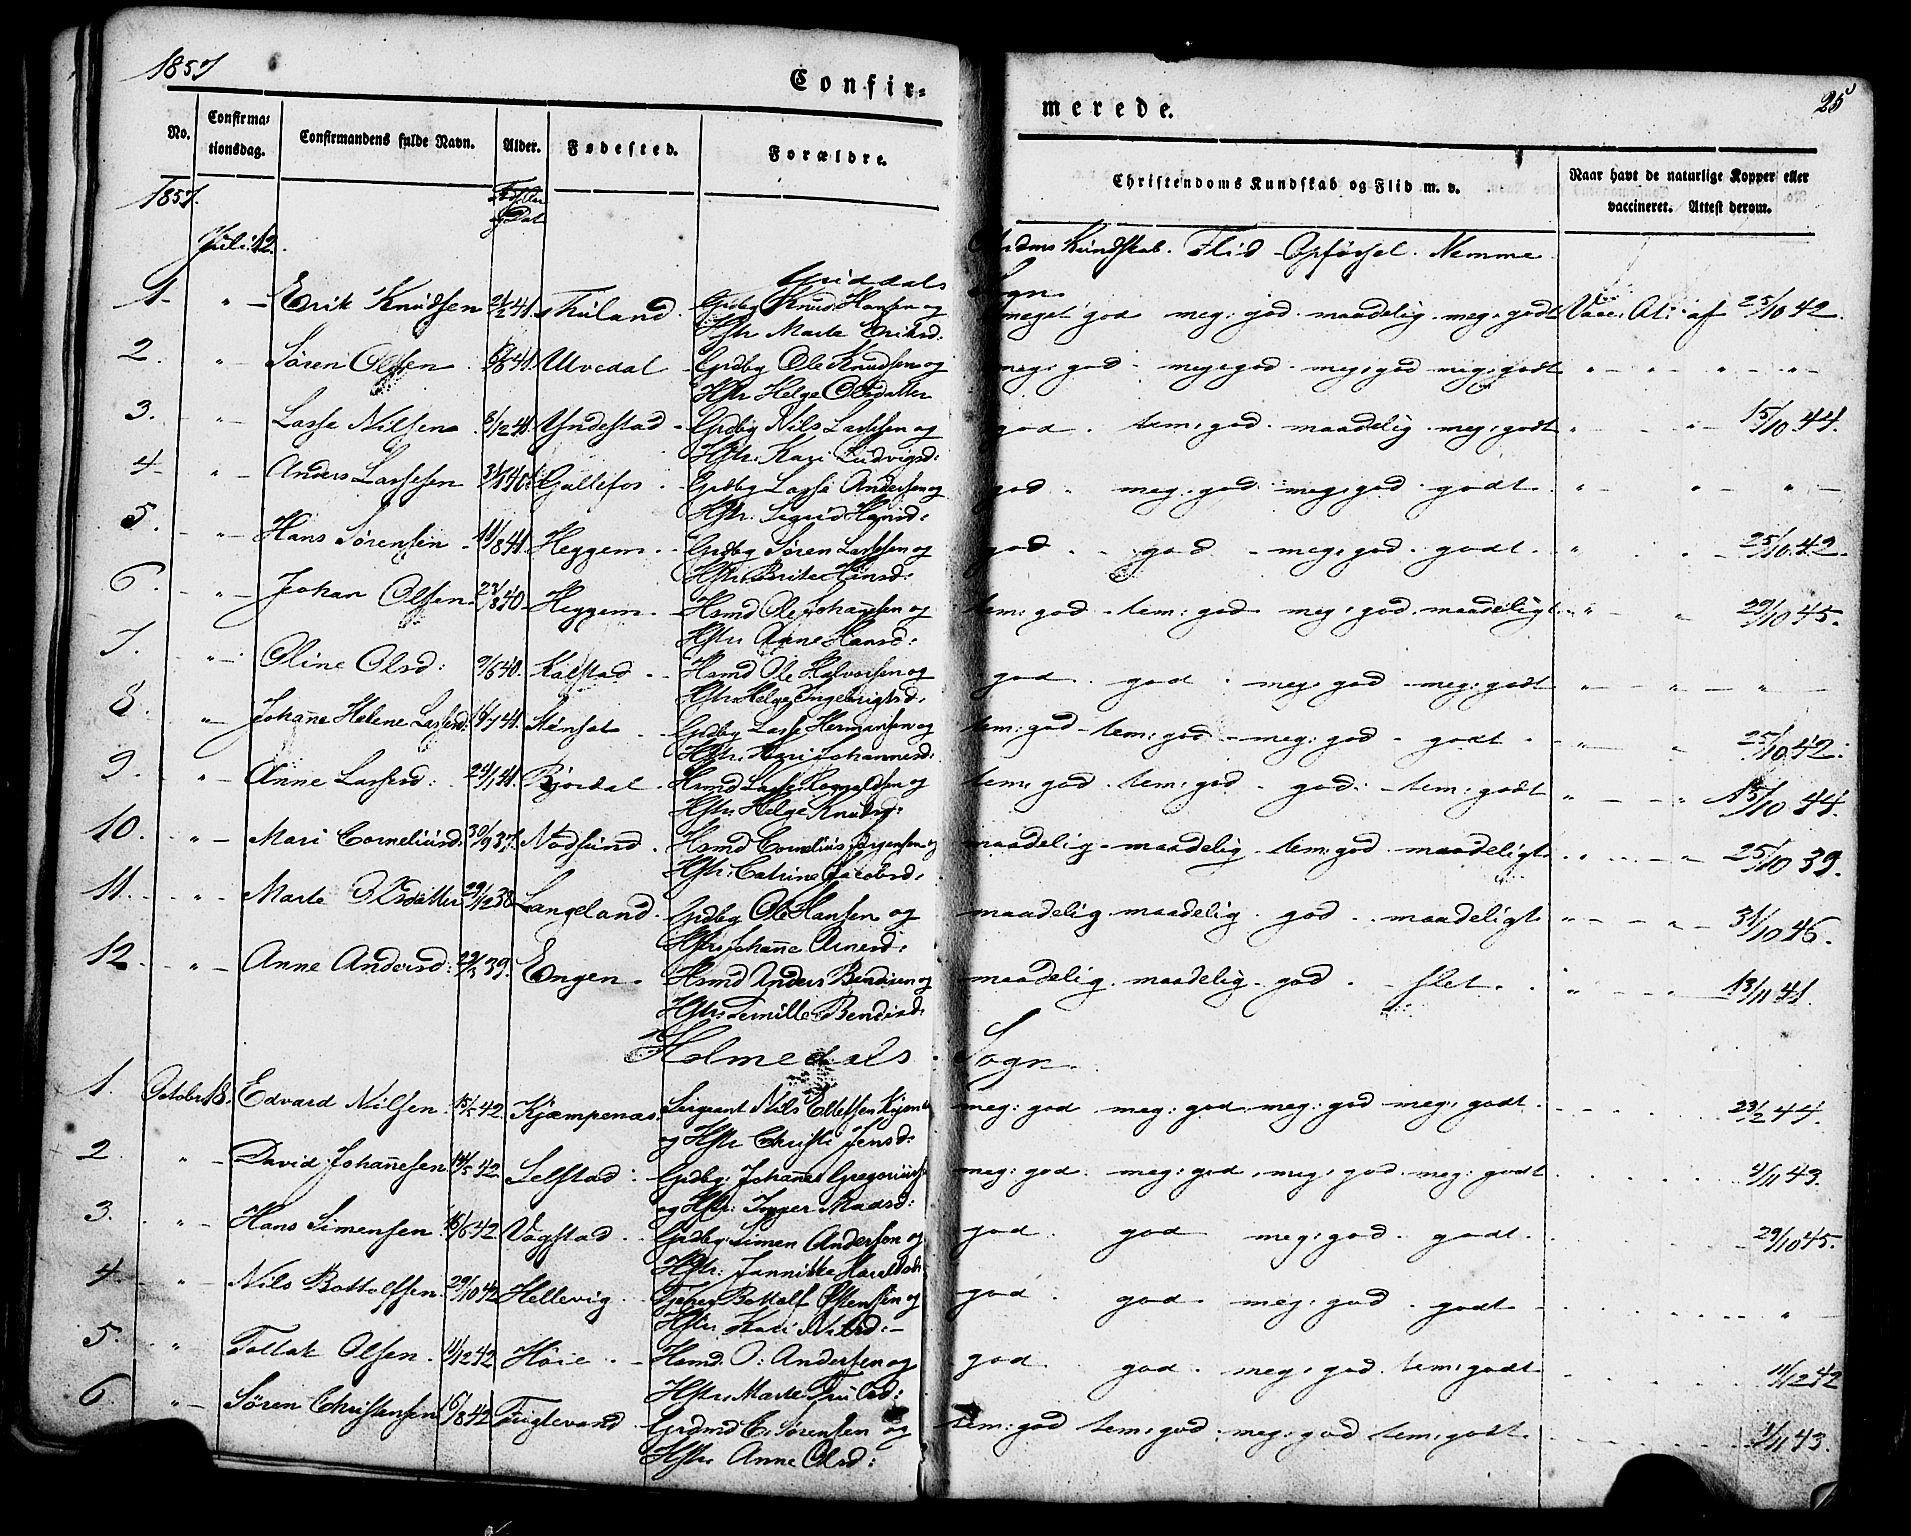 1857
Confir=
merede.
25
No.
Confirma= tionsdag.
Confirmandens fulde Navn.
Alder.
Fødested.
Forældre.
Christendoms Kundskab og Flid m. v.
Naar havt de naturlige Kopper eller vaccineret. Attest derom.
1857.
og Dat
Juli 12.
Kundskab. Flid Opførsel. Nemme
Guddals Sogn
1 " Erik Knudsen 41 Grdbg Knud Hansen og meget god meg: god maadelig meg: godt Vacc. Att. af 25/10 42.
Hstr Marte Eriksd:
2. " Søren Olsen 41. Utvedal Grdbg Ole Knudsen og meg: god meg: god meg: god meg: godt " " " "
Hstr Helge Olsdatter
3. " Lasse Nilsen 2/12 41. Yndestad Grdbg Nils Lassesen og god tem: god maadelig meg: godt " " 15/10 44.
Hstr. Kari Ludvigsd:
4 " Anders Lassesen 40. Gallefos Grdbg Lasse Andersen og god meg: god meg: god godt " " "
Hstr. Sigrid Hansd:
5. " Hans Sørensen 11/8 41. Heggem Grdbg Søren Lassesen og god god meg: god godt " " 25/10 42.
Hstr. Brite Hansd:
6. " Johan Olsen 23/8 40. Heggem Hsmd Ole Johannesen og tem: god tem: god meg: god maadeligt " " 29/10 45.
Hstr. Anne Hansd:
7. " Oline Olsd: 9/6 40. Kalstad Hsmd Ole Halvorsen og god god meg: god meg: godt " " "
Hstr. Helge Ingebrigtsd.
8. " Johanne Helene Lassesd: 16/7 41. Stenset Grdbg Lasse Hermansen og tem: god tem: god meg: god godt " " 25/10 42.
Hstr. Kari Johannesd:
9 " Anne Lassesd: 24/1 41. Bjordal Hsmd Lasse og tem: god tem: god god tem: godt " " 15/10 44.
Hstr. Helge Knudsd:
10. " Mari Corneliusd: 30/9 37. Nodsund Hsmd Cornelius Jørgensen og maadelig maadelig tem: god maadeligt " " 25/10 39.
Hstr. Catrine Jacobsd:
11. " Marte Olsdatter 29/12 38. Langeland Grdbg Ole Hansen og maadelig maadelig god maadeligt " " 31/10 46.
Hstr. Johanne Arnesd:
12. " Anne Andersd: 39. Engen Hsmd Anders Bendixen og maadelig maadelig god slet " " 13/11 41.
Hstr. Pernille Bendixd:
Holmedals Sogn.
1. October 18. Edvard Nilsen 15/5 42. Kjæmpenæs Sergeant Nils Ellefsen og meg: god meg: god meg: god meg: godt 23/2 44.
og Hstr Christi Jensd:
2. " David Johannesen 14/5 42 Selstad Grdbg. Johannes Gregoriuss: meg: god meg: god meg: god meg: godt 2/11 43.
og Hstr. Inger Madsd:
3. " Hans Simensen 16/6 42. Vagstad Grdbg. Simen Andersen og god god meg: god godt 29/10 45.
Hstr. Jannikke Haraldsd:
4. " Nils Bottolfsen 29/10 42 Hellevig Bottolf Østensen og god god meg: god godt "
Hstr. Kari Nilsd:
5. " Tollak Olsen 11/12 42 Høie Hsmd. O: Andersen og god god meg: god tem: godt 11/12 42
Hstr. Marte Trulsd:
6 " Søren Christensen 16/8 42 Fuglevand Grdmd C. Sørensen og tem: god tem: god meg: god tem: godt 2/11 43.
Hstr Anne Olsd: